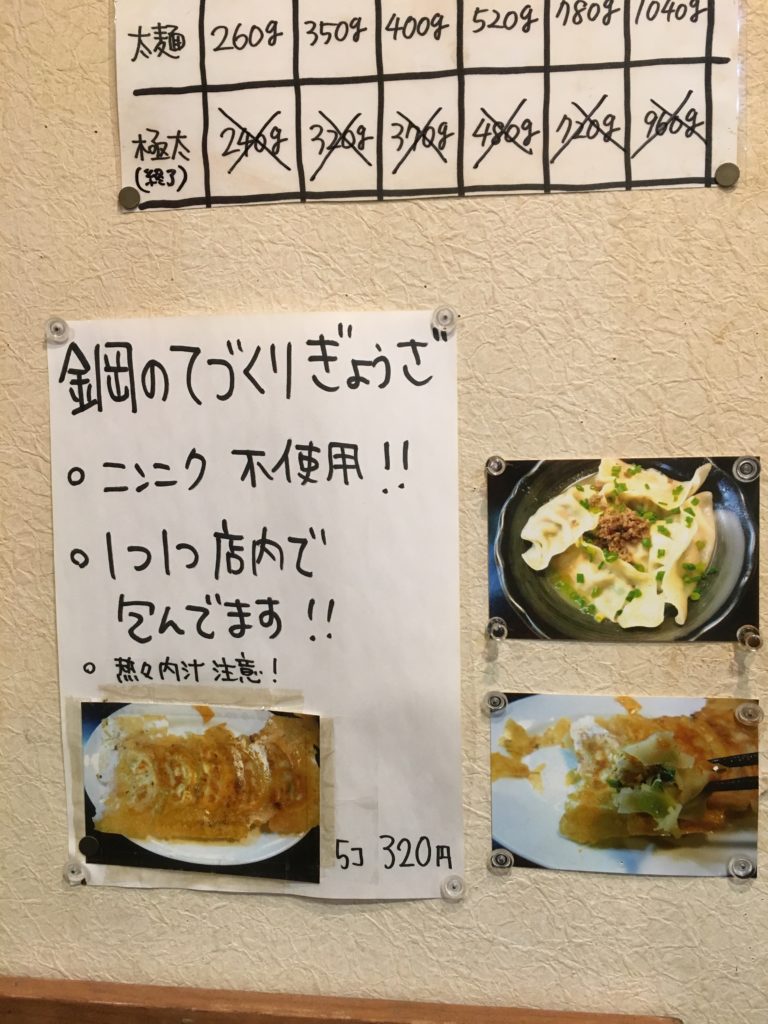 太麺 260g 350g 400g 520g 780g 1040g
極太 240g 320g 370g 480g 720g 960g
(終了)
鋼のてづくりぎょうざ
○ ニンニク 不使用!!
○ 1つ1つ店内で
包んでます!!
○ 熱々肉汁 注意!
5コ 320円